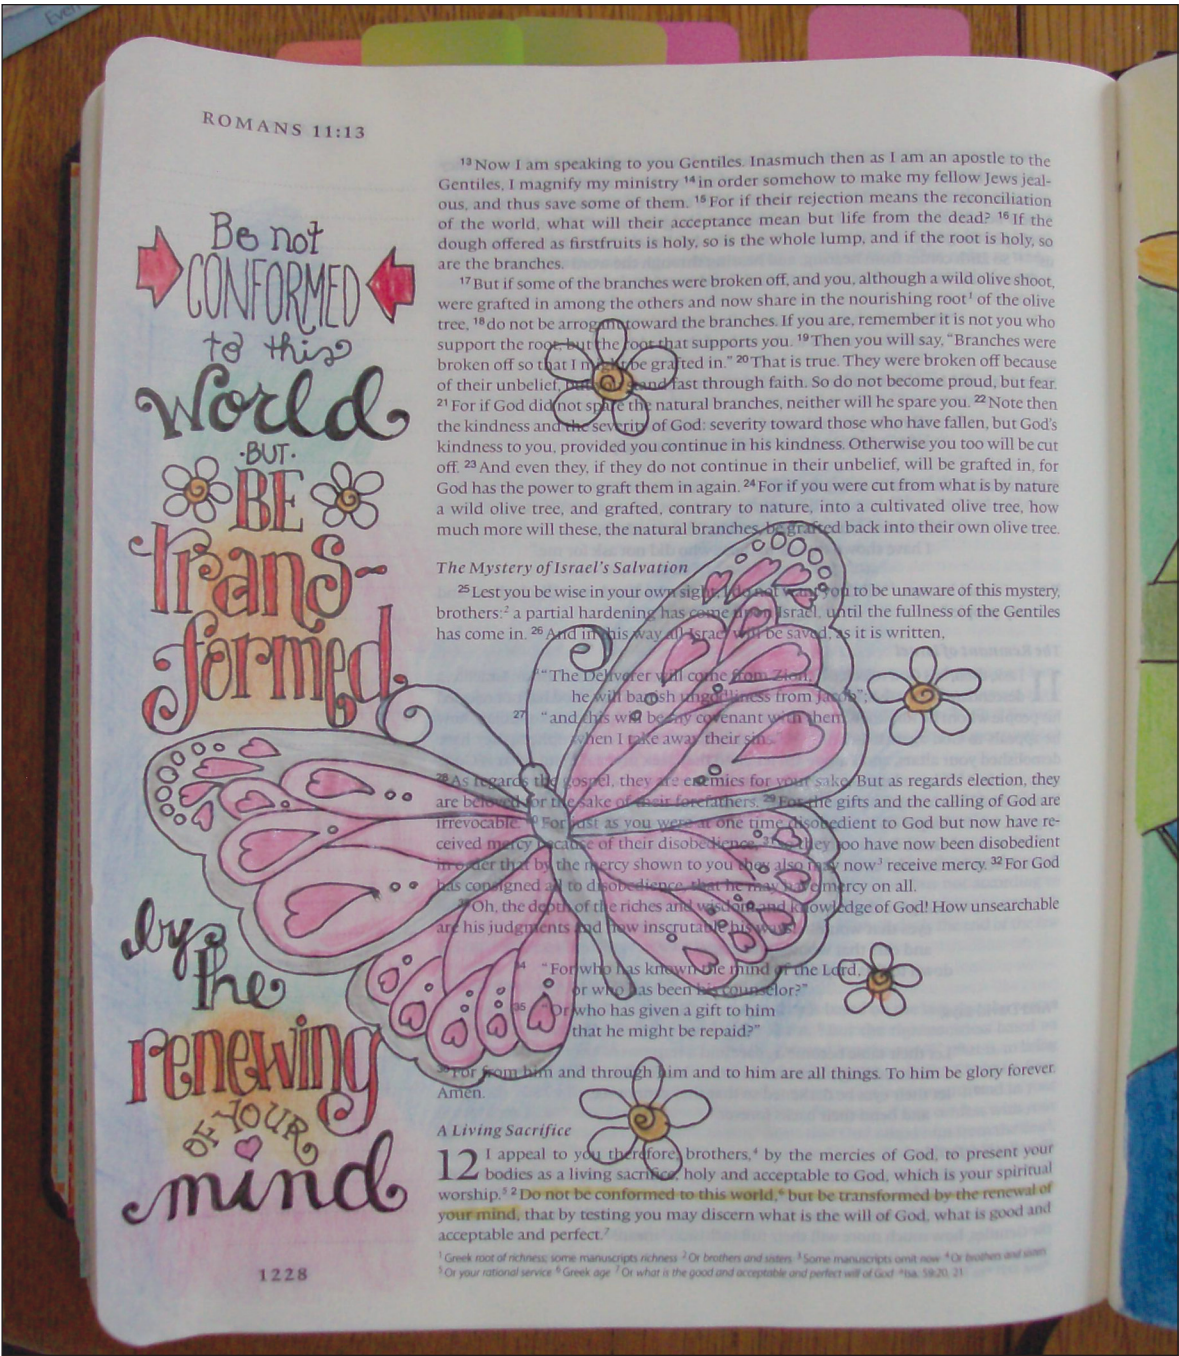 Even
ROMANS 11:13
Be not
CONFORMED
to this
World
·BUT·
BE
trans-
formed
by
the
renewing
OF YOUR
mind
13 Now I am speaking to you Gentiles. Inasmuch then as I am an apostle to the
Gentiles, I magnify my ministry 14 in order somehow to make my fellow Jews jeal-
ous, and thus save some of them. 15 For if their rejection means the reconciliation
of the world, what will their acceptance mean but life from the dead? 16 If the
dough offered as firstfruits is holy, so is the whole lump, and if the root is holy, so
are the branches.
17 But if some of the branches were broken off, and you, although a wild olive shoot,
were grafted in among the others and now share in the nourishing root1 of the olive
tree, 18 do not be arrogant toward the branches. If you are, remember it is not you who
support the root, but the root that supports you. 19 Then you will say, "Branches were
broken off so that I might be grafted in." 20 That is true. They were broken off because
of their unbelief, but you stand fast through faith. So do not become proud, but fear.
21 For if God did not spare the natural branches, neither will he spare you. 22 Note then
the kindness and the severity of God: severity toward those who have fallen, but God's
kindness to you, provided you continue in his kindness. Otherwise you too will be cut
off. 23 And even they, if they do not continue in their unbelief, will be grafted in, for
God has the power to graft them in again. 24 For if you were cut from what is by nature
a wild olive tree, and grafted, contrary to nature, into a cultivated olive tree, how
much more will these, the natural branches, be grafted back into their own olive tree.
The Mystery of Israel's Salvation
25 Lest you be wise in your own sight, I do not want you to be unaware of this mystery,
brothers:2 a partial hardening has come upon Israel, until the fullness of the Gentiles
has come in. 26 And in this way all Israel will be saved, as it is written,
"The Deliverer will come from Zion,
he will banish ungodliness from Jacob";
27 "and this will be my covenant with them
when I take away their sins."
28 As regards the gospel, they are enemies for your sake. But as regards election, they
are beloved for the sake of their forefathers. 29 For the gifts and the calling of God are
irrevocable. 30 For just as you were at one time disobedient to God but now have re-
ceived mercy because of their disobedience, 31 so they too have now been disobedient
in order that by the mercy shown to you they also may now3 receive mercy. 32 For God
has consigned all to disobedience, that he may have mercy on all.
33 Oh, the depth of the riches and wisdom and knowledge of God! How unsearchable
are his judgments and how inscrutable his ways!
34 "For who has known the mind of the Lord,
or who has been his counselor?"
35 "Or who has given a gift to him
that he might be repaid?"
36 For from him and through him and to him are all things. To him be glory forever.
Amen.
A Living Sacrifice
12 I appeal to you therefore, brothers,4 by the mercies of God, to present your
bodies as a living sacrifice, holy and acceptable to God, which is your spiritual
worship.5 2 Do not be conformed to this world,6 but be transformed by the renewal of
your mind, that by testing you may discern what is the will of God, what is good and
acceptable and perfect.7
1 Greek root of richness; some manuscripts richness 2 Or brothers and sisters 3 Some manuscripts omit now 4 Or brothers and sisters
5 Or your rational service 6 Greek age 7 Or what is the good and acceptable and perfect will of God Isa. 59:20, 21
1228